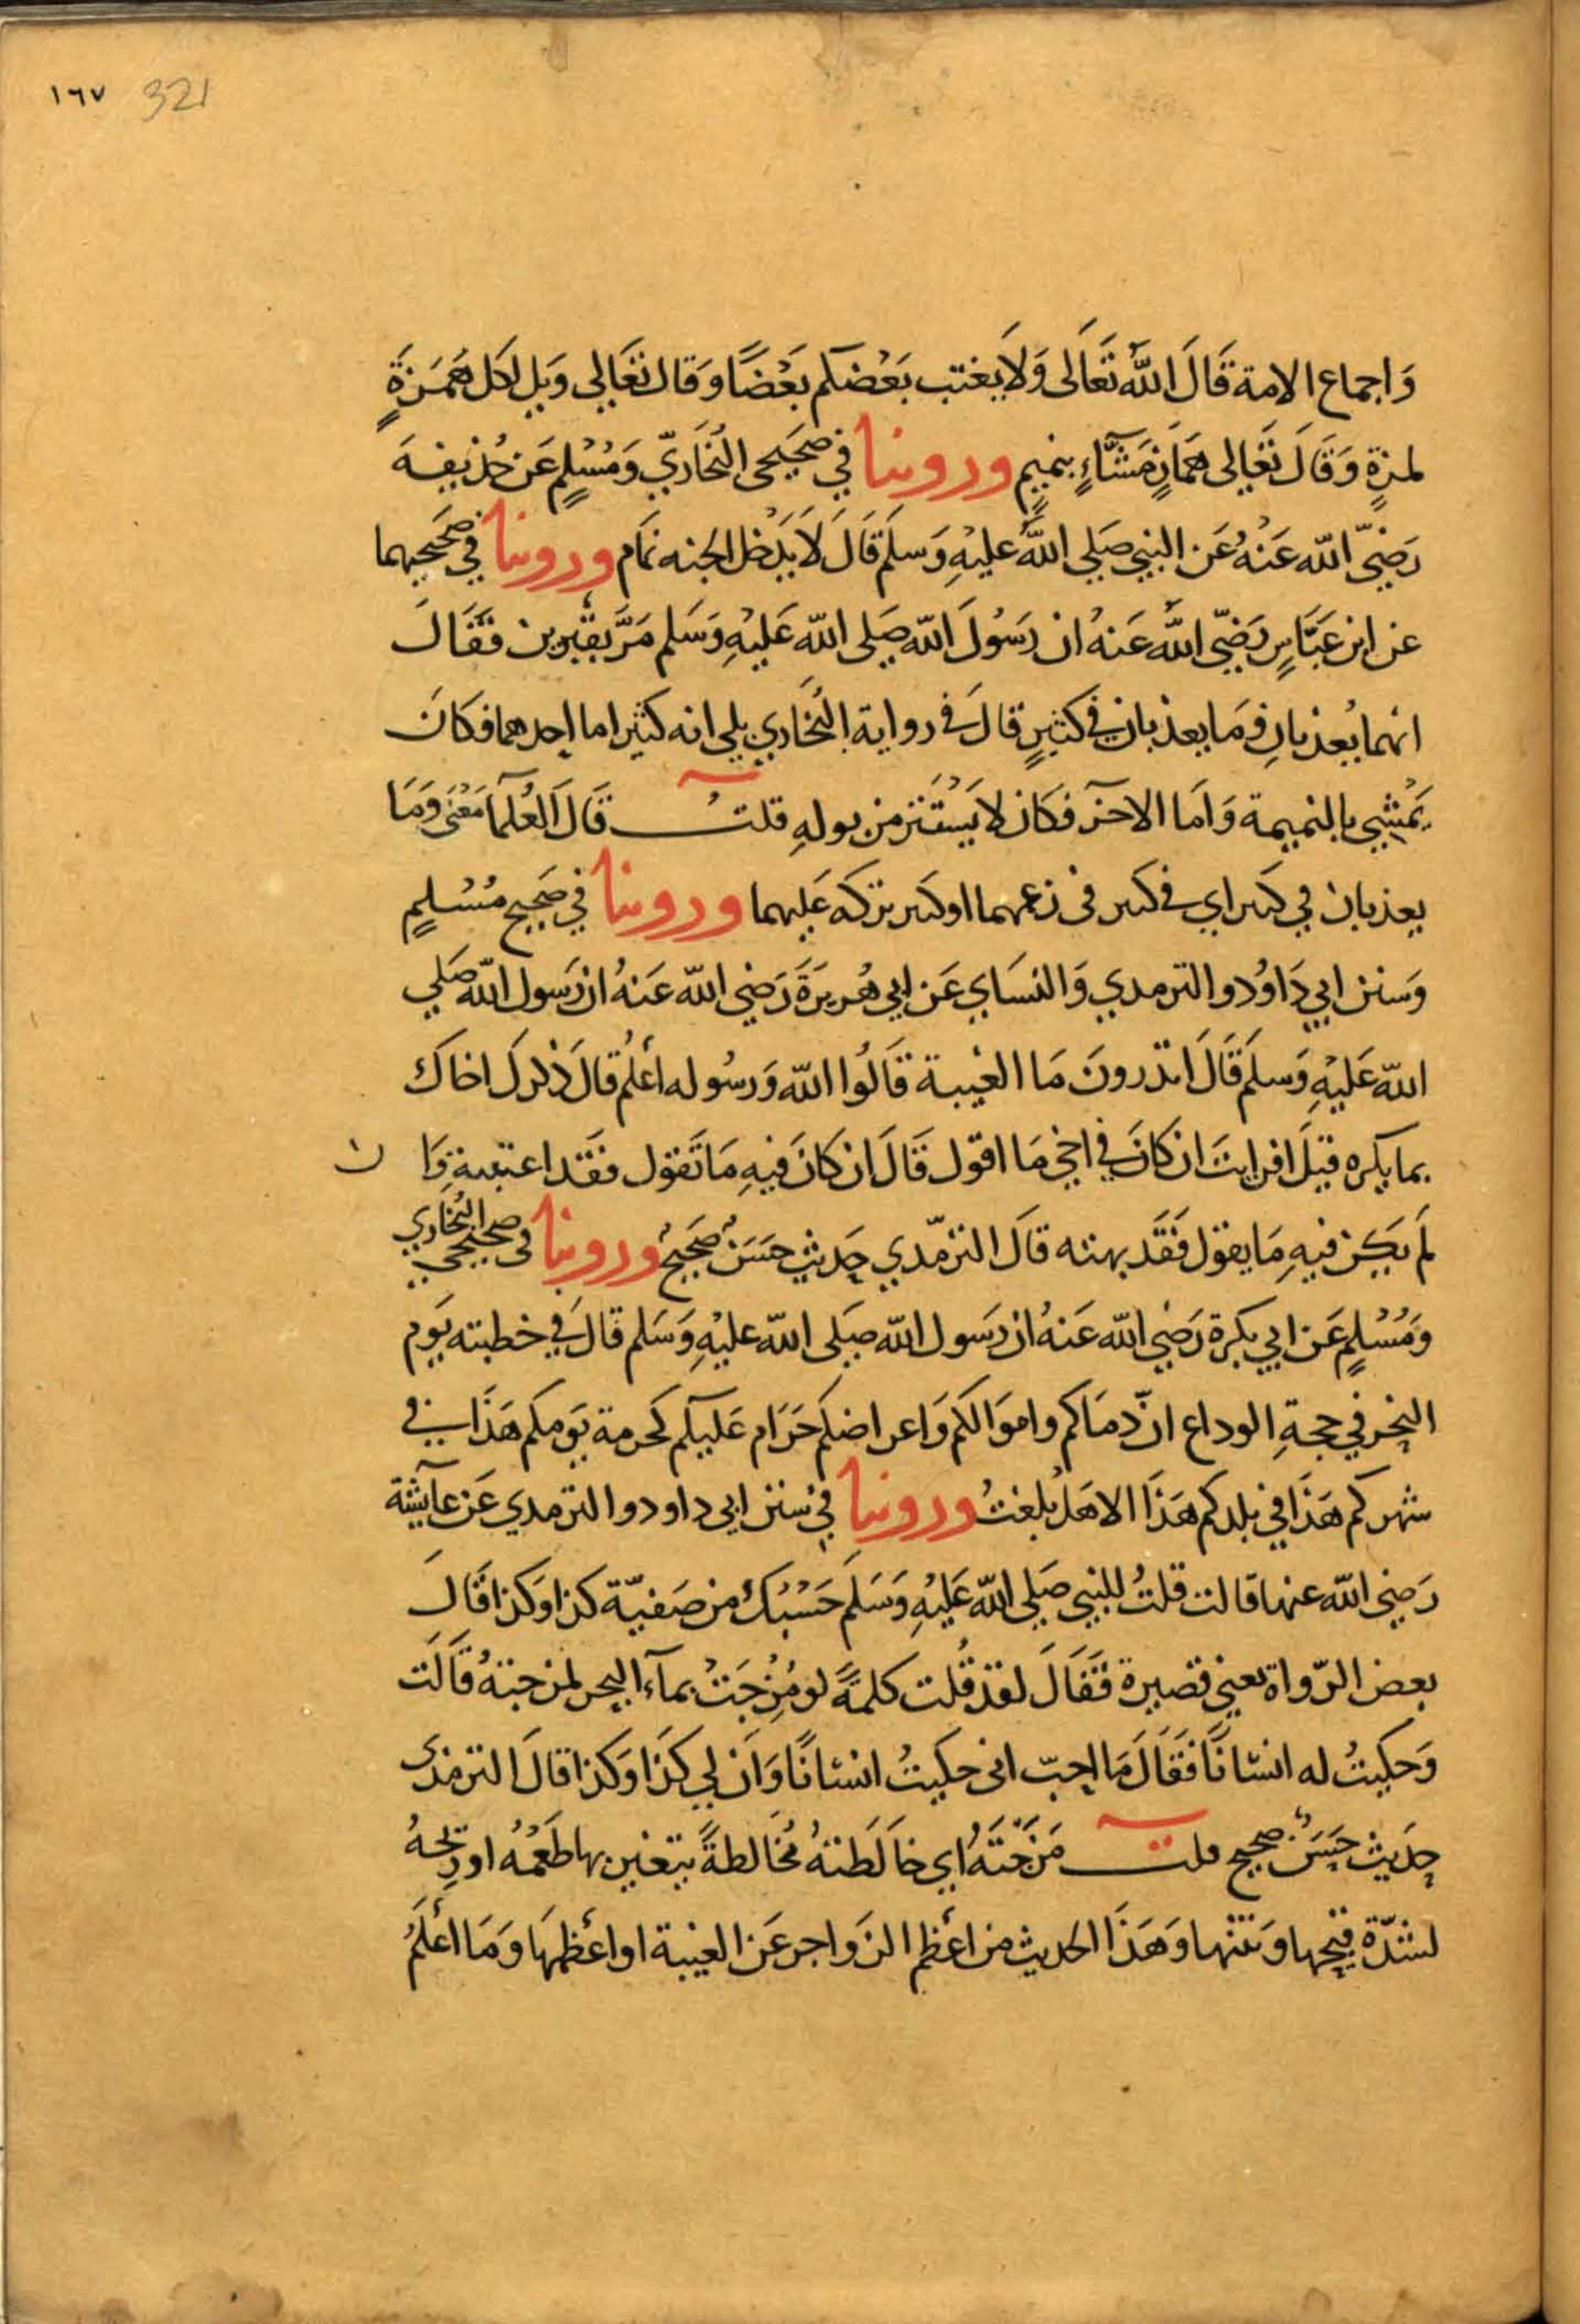 ١٦٧ 321
وَاجماع الامة قَالَ اللّٰه تَعَالَى وَلَا يَغتب بَعْضكم بَعْضًا وَقال تعَالى وَيل لكل هُمَزَةٍ
لمزةٍ وَقَالَ تعَالى همَّازٍ مَشَّاءٍ بنميمٍ وروينا في صَحيحى البُخَاريّ وَمُسْلمٍ عَن حُذيفةَ
رَضيَ اللّٰه عَنْهُ عَن النبي صَلى اللّٰه عليْهِ وَسلمَ قَالَ لَا يَدْخل الجنه نمَام وروينا في صَحيحيهما
عن ابن عَبَّاسٍ رَضيَ اللّٰه عَنهُ ان رَسُولَ اللّٰه صَلى اللّٰه عَليْهِ وَسَلم مَرَّ بقبرين فقَالَ
انهما يُعذبانِ وَمَا يعذبان في كثيرٍ قالَ في رواية البُخَاري بلى انه كثير اما احدهما فكانَ
يَمْشي بالنميمة وَاما الاخر فكان لا يَسْتتر من بولهِ قلتُ قَالَ العُلمَا مَعْنَى وَمَا
يعذبان في كبير اي في كبير في زعمهما او كبير تركه عَليهما وروينا في صَحيح مُسْلمٍ
وَسنن ابي دَاوُد والترمدي وَالنسَاي عَن ابي هُريرَةَ رَضي اللّٰه عَنهُ ان رَسول اللّٰه صَلي
اللّٰه عَليْهِ وَسلمَ قَالَ اتدرونَ مَا الغيبة قَالُوا اللّٰه وَرسُوله أعلمُ قالَ ذكركَ اخاكَ
بما يكره قيلَ افرايتَ ان كانَ في اخي مَا اقول قَالَ ان كانَ فيهِ مَا تَقول فقَد اغتبتهُ وَا ن
لَم يَكن فيهِ مَا يقول فَقَد بهته قالَ الترمدي حَديث حسَنٌ صَحيحٌ وروينا في صحيحي البُخاري
وَمُسْلمٍ عَن ابي بكرة رَضي اللّٰه عَنهُ ان رَسول اللّٰه صَلى اللّٰه عليْهِ وَسَلم قالَ في خطبته يَوم
النحر في حجةِ الوداع انّ دمَاكم وامَوالكم وَاعراضكم حَرَام عَليكم كحرمة يَومكم هَذَا في
شهركم هَذَا في بلدكم هَذَا الا هَل بَلغتُ وروينا في سنن ابي داود والترمدي عَن عآيشة
رَضي اللّٰه عنها قالت قلتُ للنبي صَلى اللّٰه عَليْهِ وَسَلم حَسْبُكَ من صَفيّة كذا وَكذا قَالَ
بعض الرّواة تعني قصيرة فقَالَ لقد قُلت كلمةً لو مُزِجَتْ بمآء البحر لمزجتهُ قَالَت
وَحكيتُ له انسَانًا فقَالَ مَا احبّ اني حكيتُ انسَانًا وَان لي كذَا وَكذا قالَ الترمذى
حَديث حَسَنٌ صحيح قلت مَزجَتَهُ أي خالَطتهُ مُخَالطةً يتغير بها طَعْمُهُ او ريحهُ
لشدّة قبحها وَنتنها وَهَذَا الحديث من أعظم الزَواجر عَن الغيبة او أعظمهَا وَمَا أعلَمُ